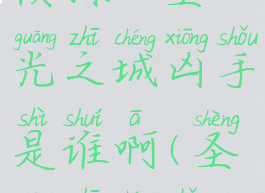 guāng zhī chéng xiōng shǒu
光之城凶手
shì shuí ā shèng
是谁啊(圣